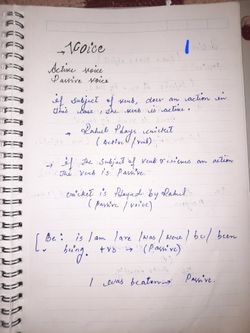 → Voice
1
Active voice
Passive voice
if subject of verb, does an action in
this case, the verb is active.
→ Rahul Plays cricket
(active / verb)
→ if the subject of verb receives an action
the verb is Passive.
cricket is Played by Rahul
(passive / voice)
[ Be : is / am / are / was / were / be / been
being. + v3 → (Passive)
I was beaten → Passive.